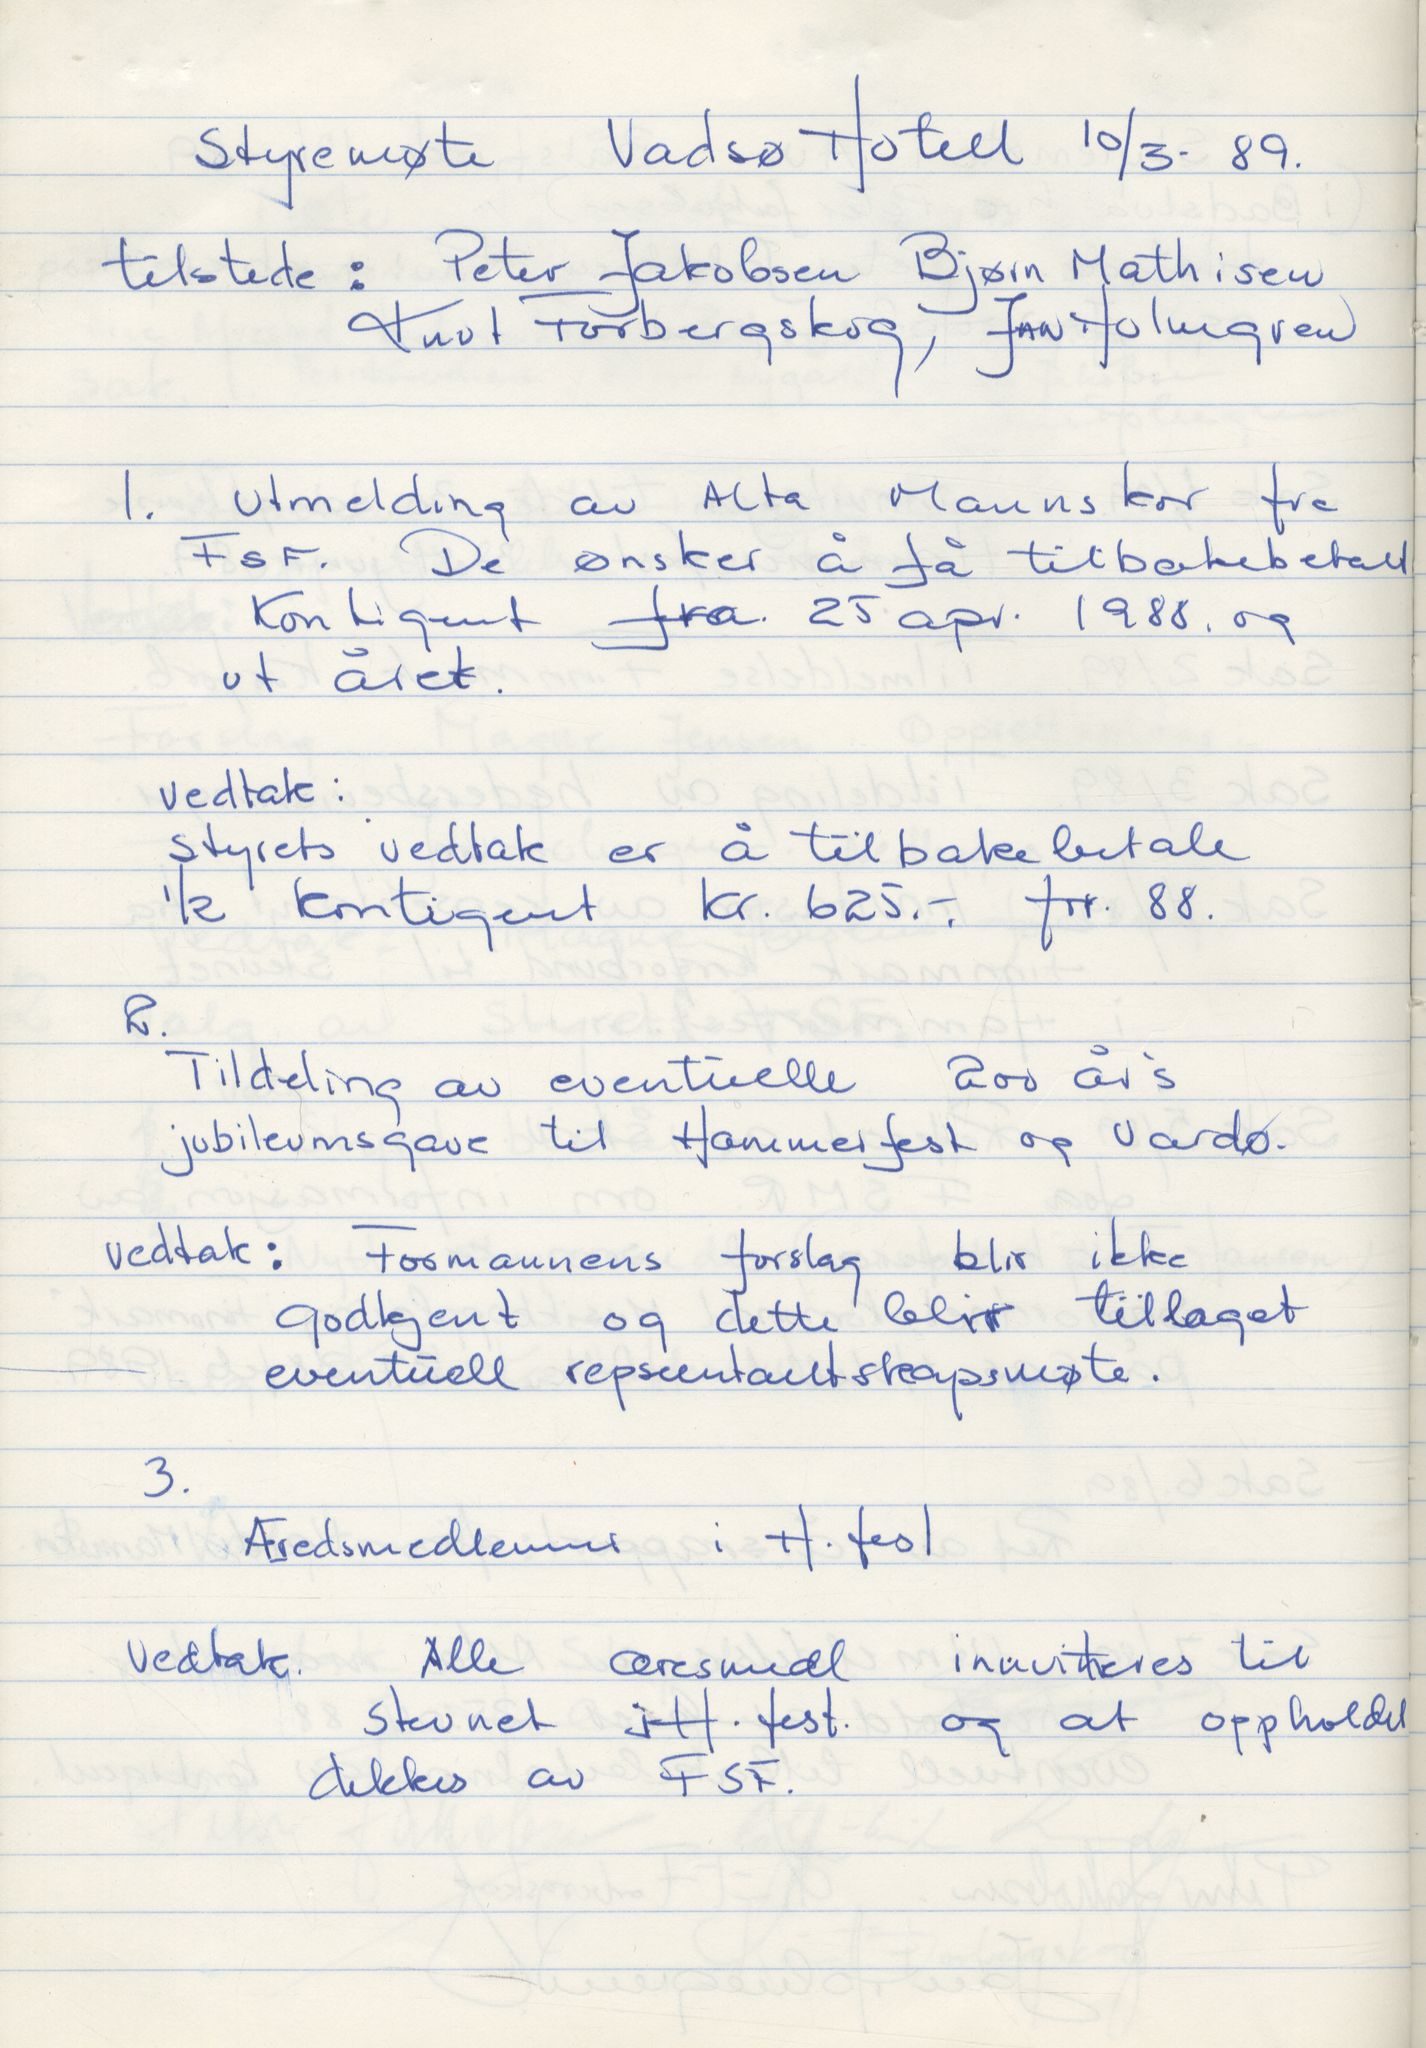 Styremøte Vadsø Hotell 10/3-89.
tilstede: Peter Jakobsen Bjørn Mathisen
Knut Forbergskog, Jan Holmgren
1. Utmelding av Alta Mannskor fra
FSF. De ønsker å få tilbakebetalt
Kontigent fra. 25 apr. 1988. og
ut året.
vedtak:
Styrets vedtak er å tilbakebetale
1/2 kontigent kr. 625.- for. 88.
2.
Tildeling av eventuelle 200 år's
jubileumsgave til Hammerfest og Vardø.
vedtak: Formannens forslag blir ikke
Godkjent og dette blir tillaget
eventuell repsentantskapsmøte.
3.
Æredsmedlemmer i H.fest
Vedtak. Alle æresmedl innviteres til
Stevnet i H.fest. og at oppholdet
dekkes av FSF.